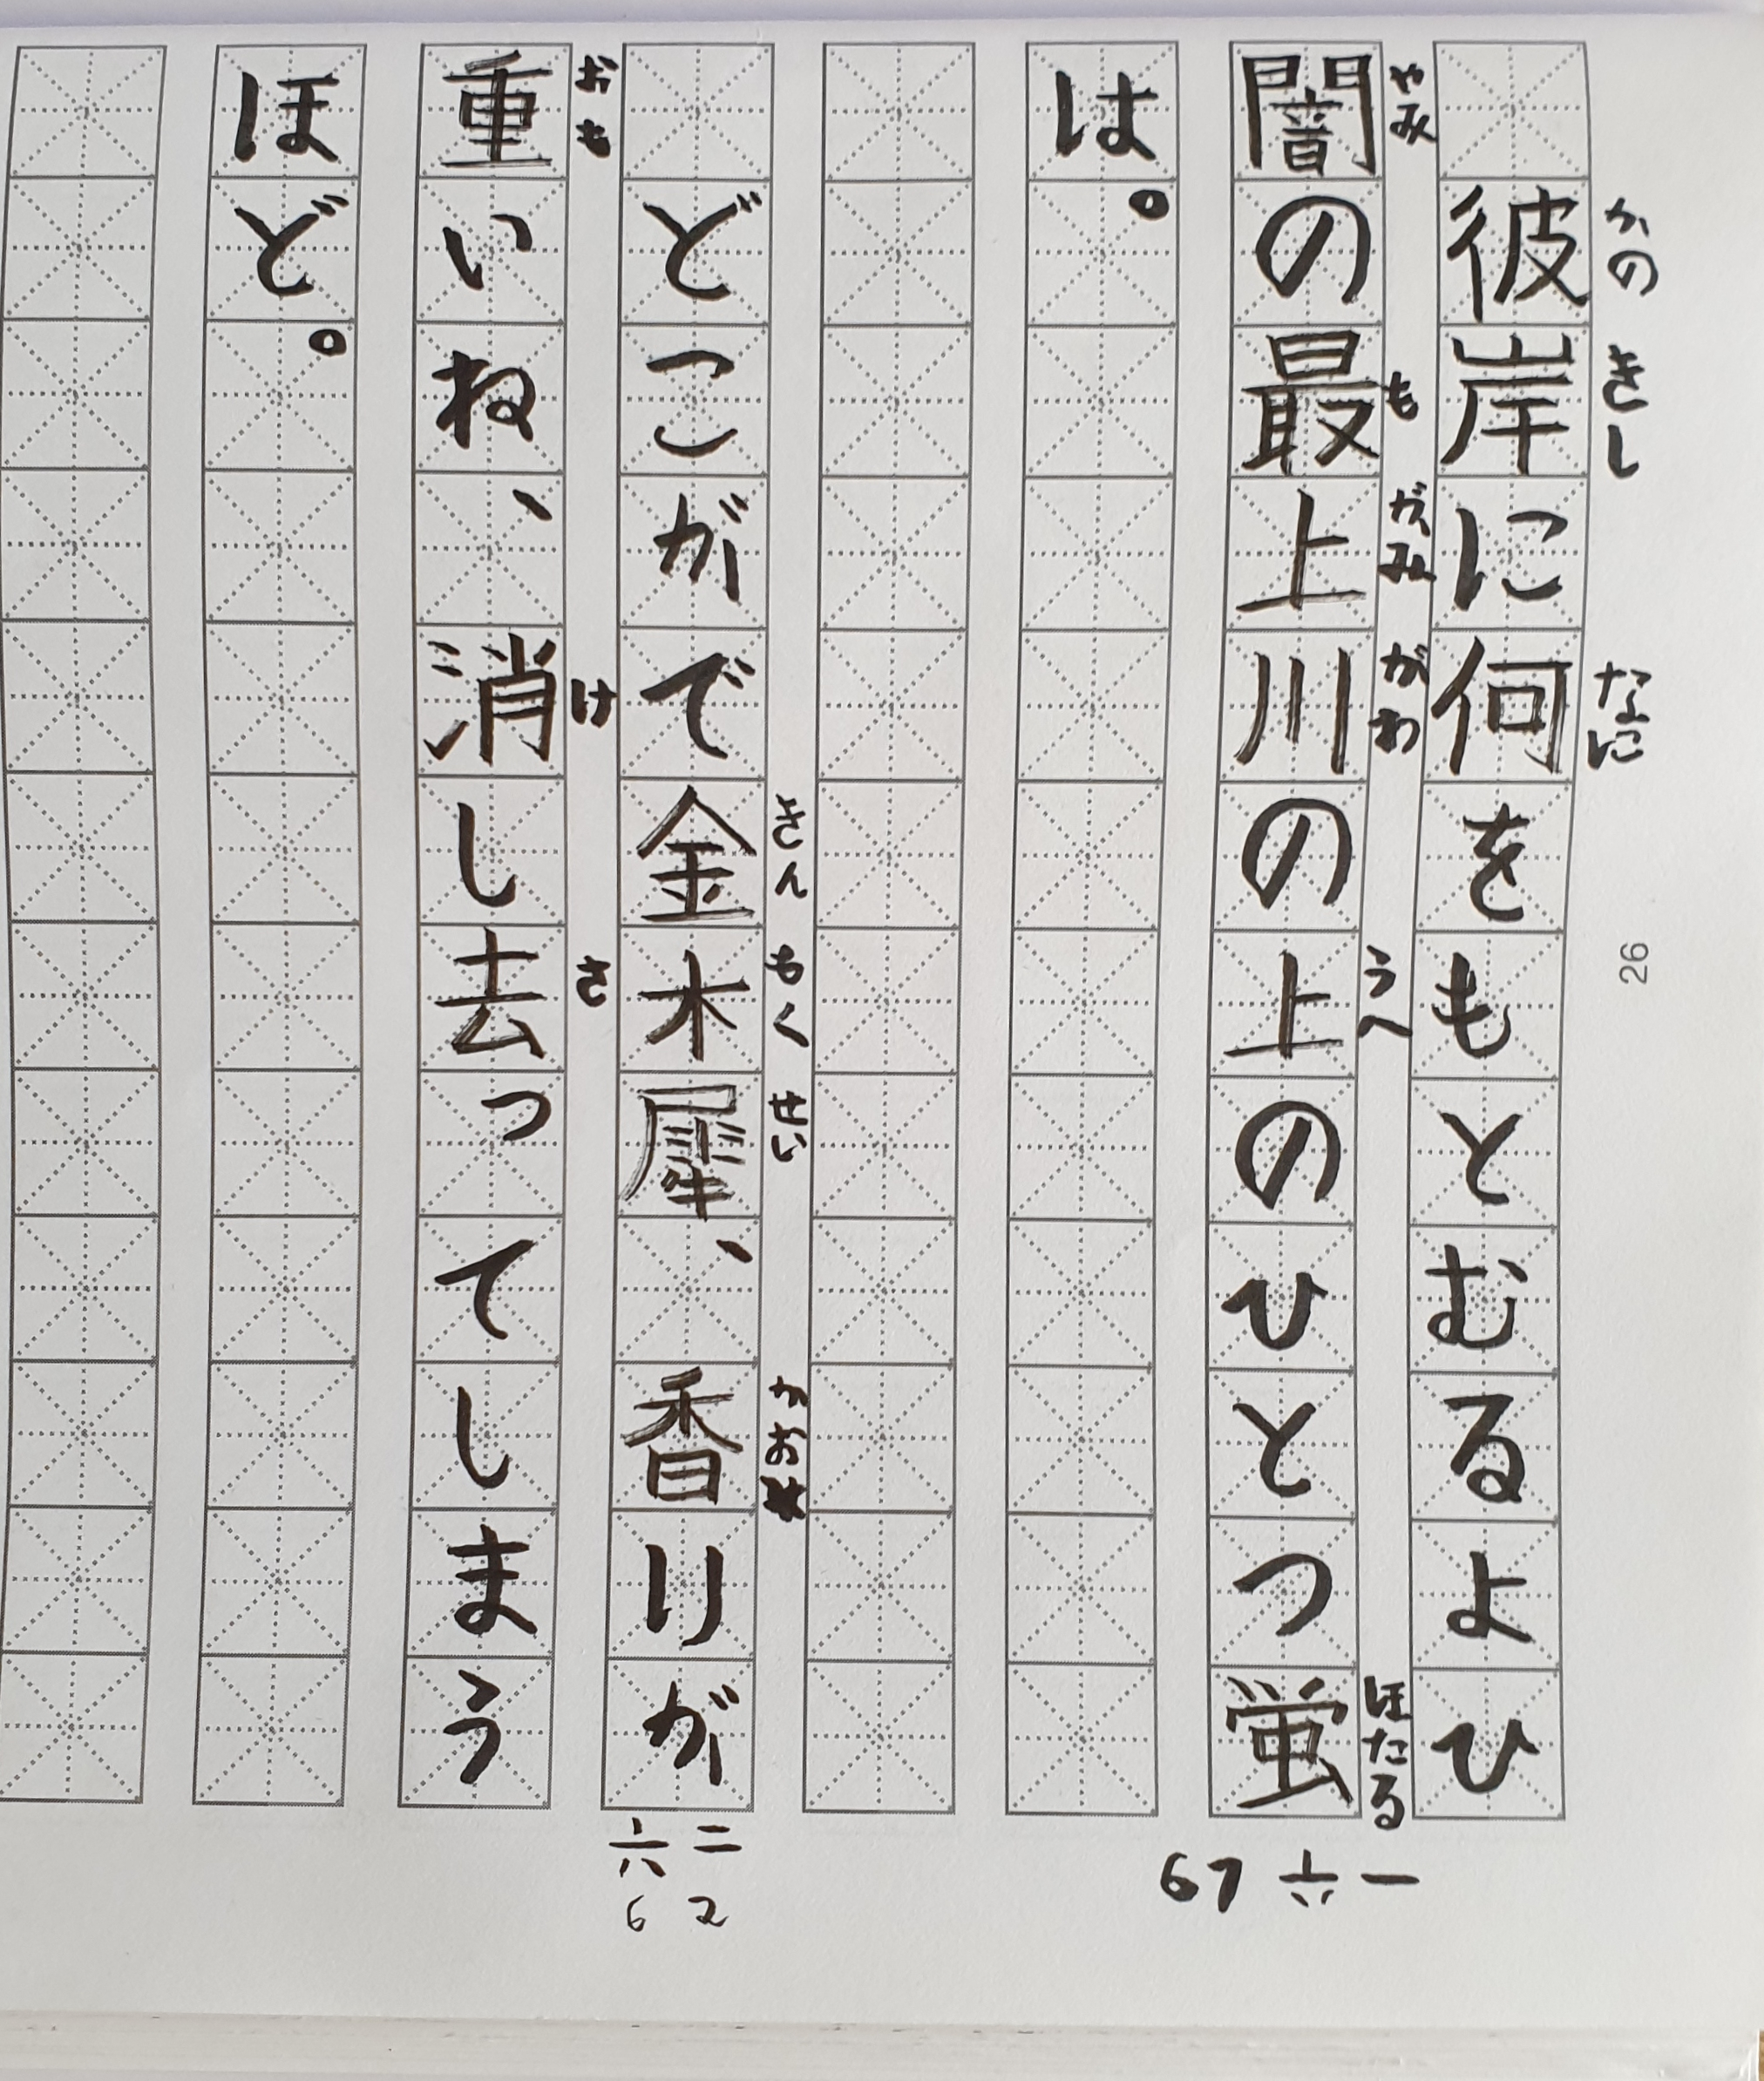 彼岸に何をもとむるよひ
かの きし なに
闇の最上川の上のひとつ蛍
やみ も がみ がわ うへ ほたる
は。
どこがで金木犀、香りが
きん もく せい かお
重いね、消し去ってしまう
おも け さ
ほど。
一 六 67
二 六
2 6
26